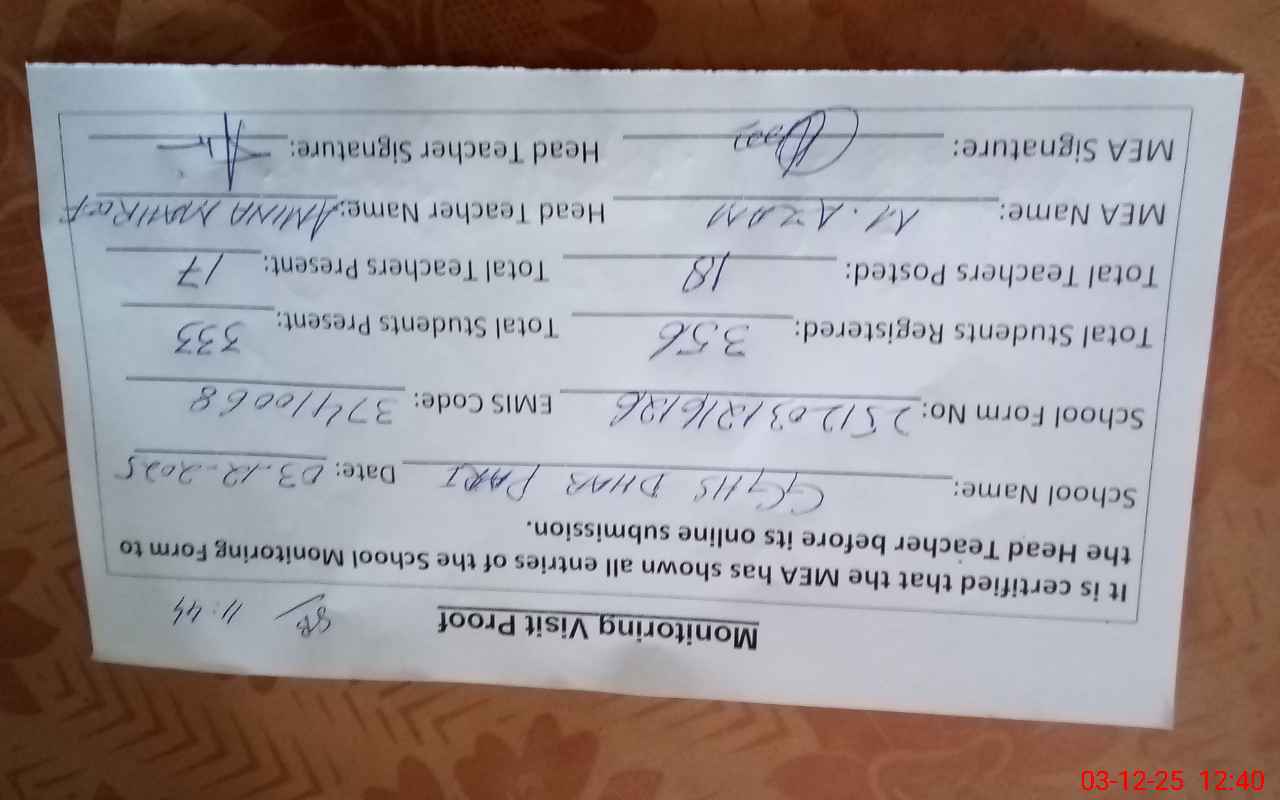 Monitoring Visit Proof 11:44
It is certified that the MEA has shown all entries of the School Monitoring Form to
the Head Teacher before its online submission.
School Name: GGHS DHAR PARI Date: 03.12.2025
School Form No: 251203121616126 EMIS Code: 37410068
Total Students Registered: 356 Total Students Present: 333
Total Teachers Posted: 18 Total Teachers Present: 17
MEA Name: M. AZAM Head Teacher Name: AMINA
MEA Signature: Head Teacher Signature:
03-12-25 12:40